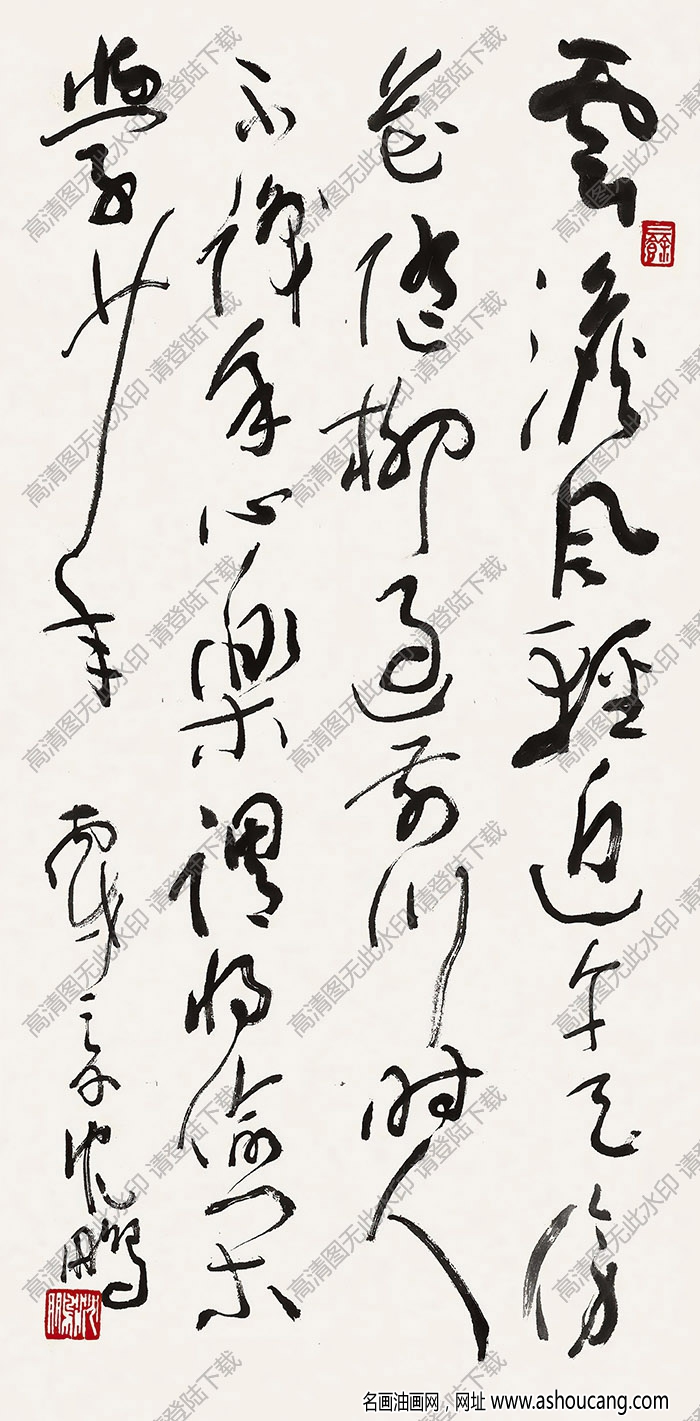 雲澹風輕近午天傍
花隨柳過前川时人
不識余心樂謂将偷閑
學少年
沈鵬
三餘
沈鵬
高清图无此水印 请登陆下载
名画油画网，网址 www.ashoucang.com